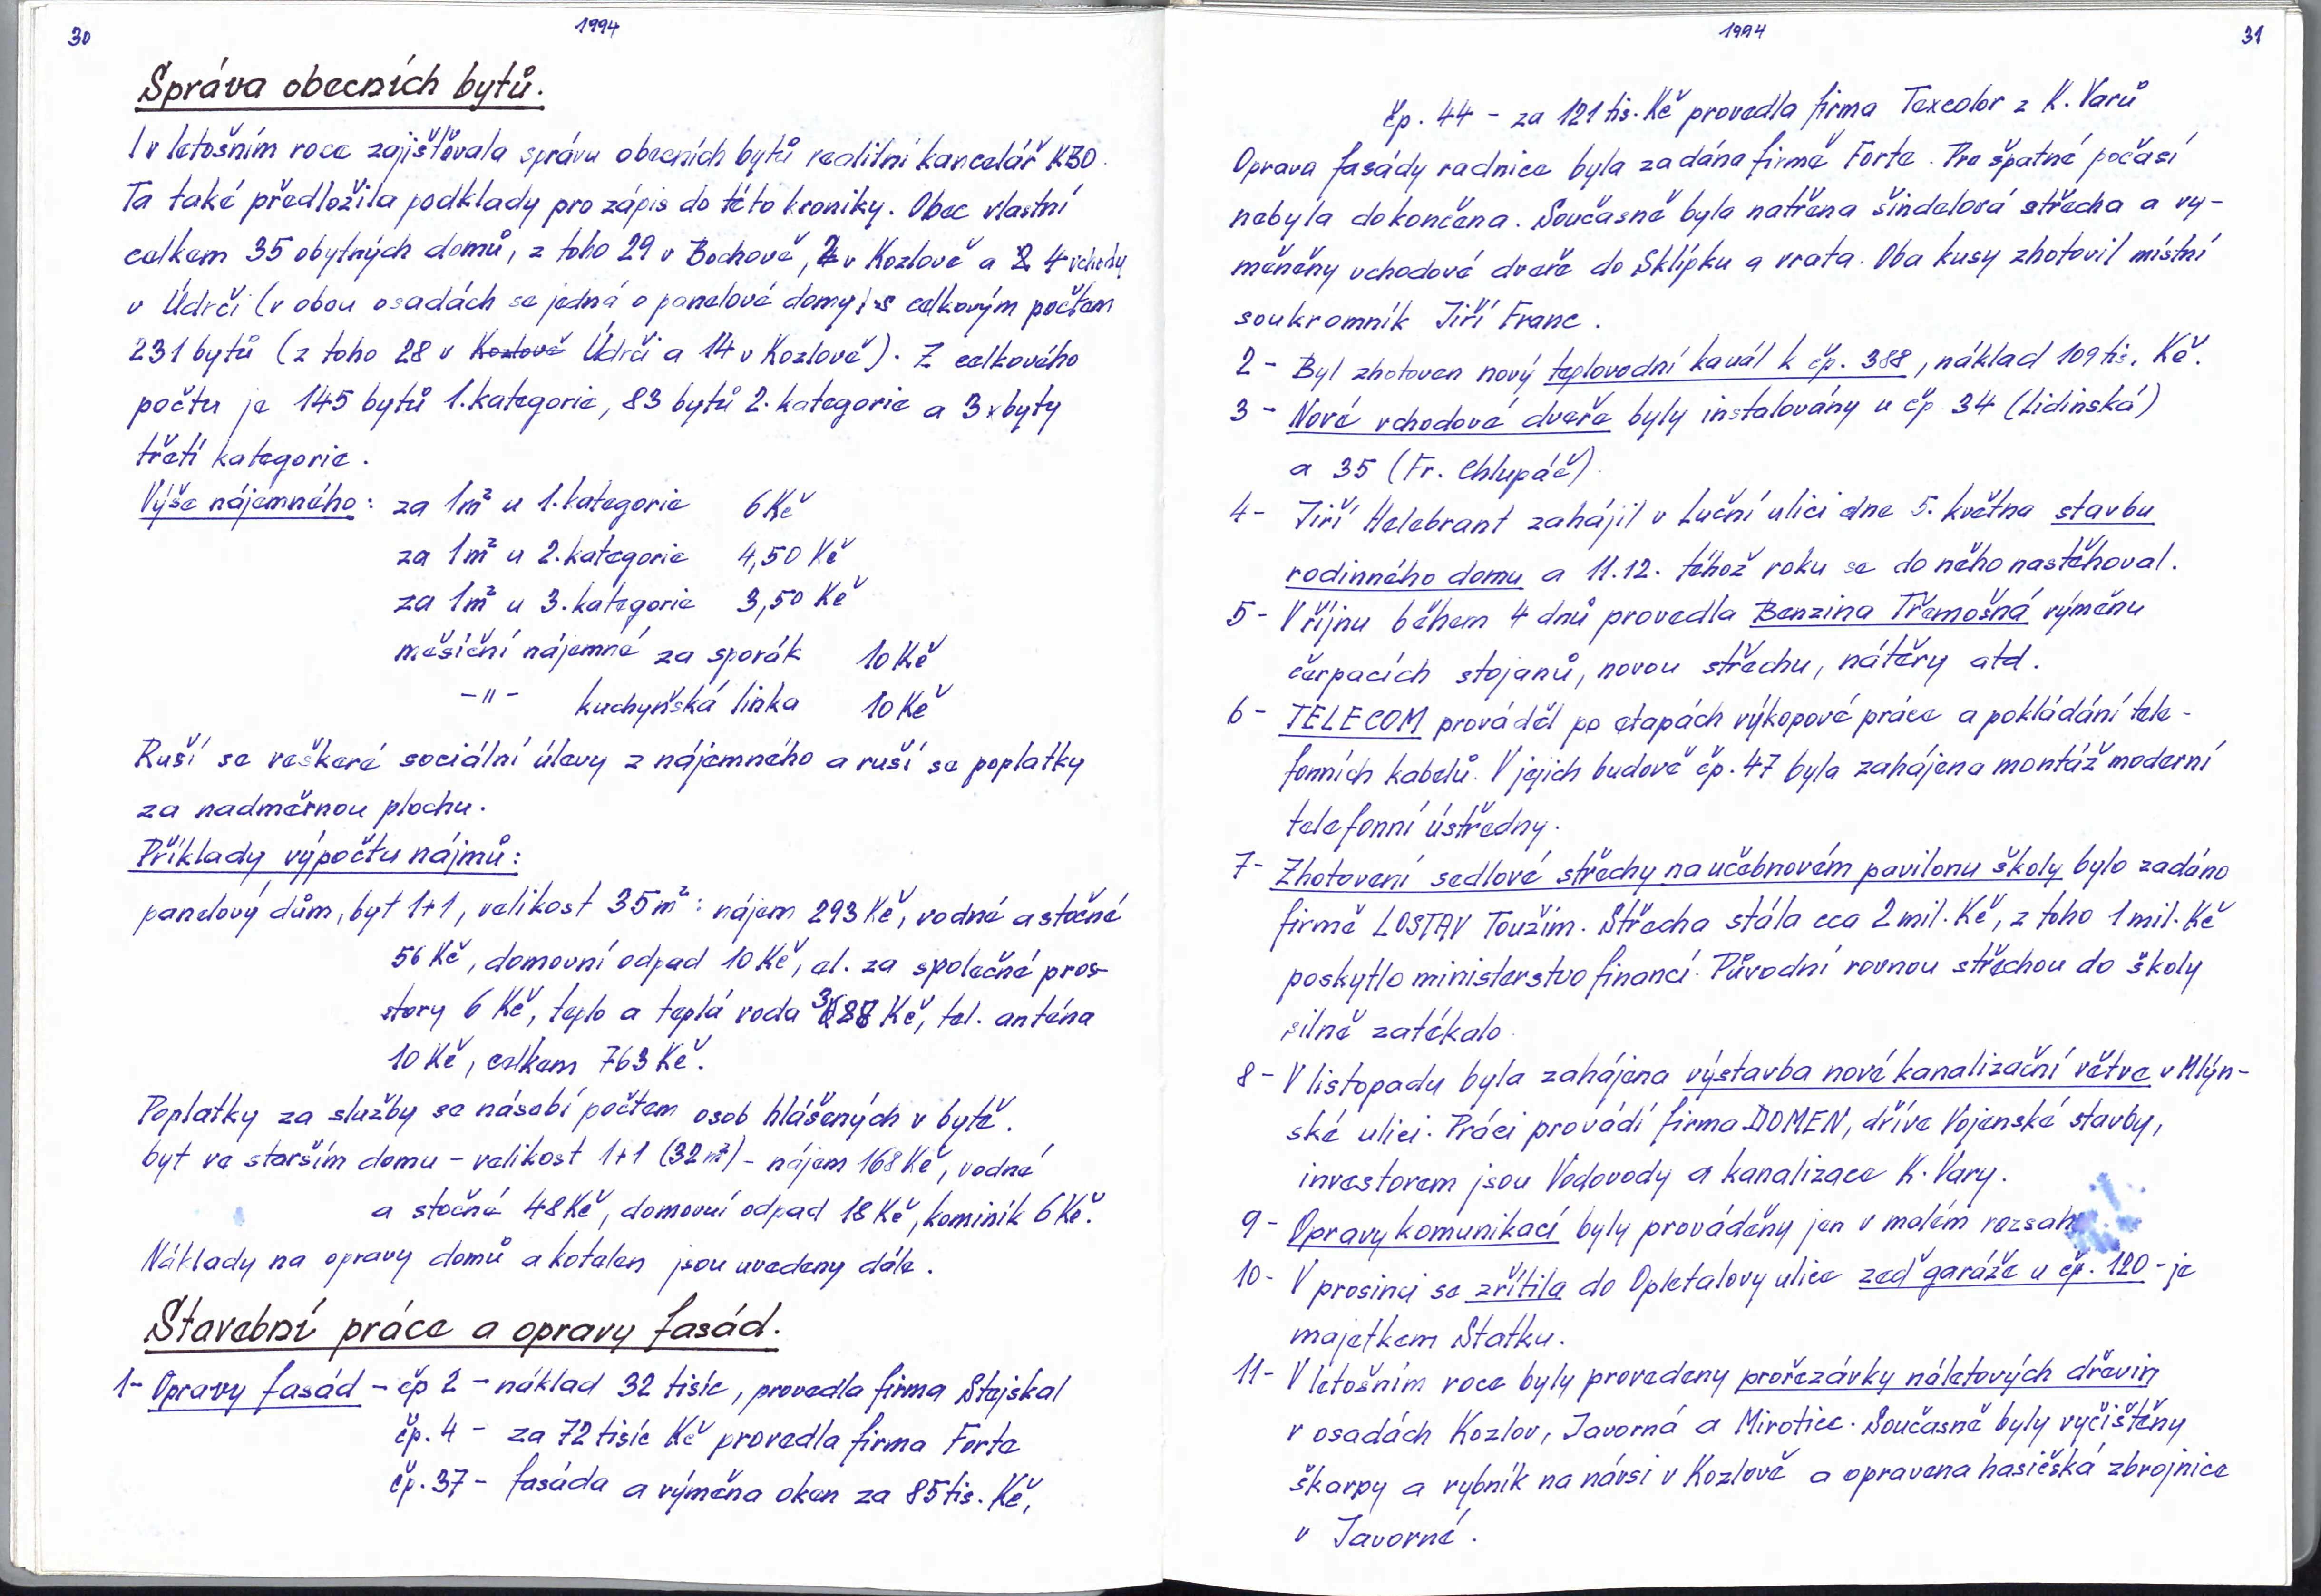 30
1994
Správa obecních bytů.
I v letošním roce zajišťovala správu obecních bytů realitní kancelář KBO.
Ta také předložila podklady pro zápis do této kroniky. Obec vlastní
celkem 35 obytných domů, z toho 29 v Bochově, 2 v Kozlově a 4 vchody
v Údrči (v obou osadách se jedná o panelové domy) s celkovým počtem
231 bytů (z toho 28 v Kozlově Údrči a 14 v Kozlově). Z celkového
počtu je 145 bytů 1. kategorie, 83 bytů 2. kategorie a 3 byty
třetí kategorie.
Výše nájemného: za 1m² u 1. kategorie 6 Kč
za 1m² u 2. kategorie 4,50 Kč
za 1m² u 3. kategorie 3,50 Kč
měsíční nájemné za sporák 10 Kč
-"- kuchyňská linka 10 Kč
Ruší se veškeré sociální úlevy z nájemného a ruší se poplatky
za nadměrnou plochu.
Příklady výpočtu nájmů:
panelový dům, byt 1+1, velikost 35m²: nájem 293 Kč, vodné a stočné
56 Kč, domovní odpad 10 Kč, el. za společné pros-
tory 6 Kč, teplo a teplá voda 388 Kč, tel. anténa
10 Kč, celkem 763 Kč.
Poplatky za služby se násobí počtem osob hlášených v bytě.
byt ve starším domu - velikost 1+1 (32m²) - nájem 168 Kč, vodné
a stočné 48 Kč, domovní odpad 18 Kč, kominík 6 Kč.
Náklady na opravy domů a kotelen jsou uvedeny dále.
Stavební práce a opravy fasád.
1- Opravy fasád - čp 2 - náklad 32 tisíc, provedla firma Stejskal
čp. 4 - za 72 tisíc Kč provedla firma Forte
čp. 37 - fasáda a výměna oken za 85 tis. Kč,
1994
31
čp. 44 - za 121 tis. Kč provedla firma Texcolor z K. Varů
Oprava fasády radnice byla zadána firmě Forte. Pro špatné počasí
nebyla dokončena. Současně byla natřena šindelová střecha a vy-
měněny vchodové dveře do Sklípku a vrata. Oba kusy zhotovil místní
soukromník Jiří Franc.
2- Byl zhotoven nový teplovodní kanál k čp. 388, náklad 109 tis. Kč.
3- Nové vchodové dveře byly instalovány u čp 34 (Lidinská)
a 35 (Fr. Chlupáč).
4- Jiří Helebrant zahájil v Luční ulici dne 5. května stavbu
rodinného domu a 11.12. téhož roku se do něho nastěhoval.
5- V říjnu během 4 dnů provedla Benzina Třemošná výměnu
čerpacích stojanů, novou střechu, nátěry atd.
6- TELECOM prováděl po etapách výkopové práce a pokládání tele-
fonních kabelů. V jejich budově čp. 47 byla zahájena montáž moderní
telefonní ústředny.
7- Zhotovení sedlové střechy na učebnovém pavilonu školy bylo zadáno
firmě LOSTAV Toužim. Střecha stála cca 2 mil. Kč, z toho 1 mil. Kč
poskytlo ministerstvo financí. Původní rovnou střechou do školy
silně zatékalo.
8- V listopadu byla zahájena výstavba nové kanalizační větve v Mlýn-
ské ulici. Práci provádí firma DOMEN, dříve Vojenské stavby,
investorem jsou Vodovody a kanalizace K. Vary.
9- Opravy komunikací byly prováděny jen v malém rozsahu
10- V prosinci se zřítila do Opletalovy ulice zeď garáže u čp. 120 - je
majetkem Statku.
11- V letošním roce byly provedeny prořezávky náletových dřevin
v osadách Kozlov, Javorná a Mirotice. Současně byly vyčištěny
škarpy a rybník na návsi v Kozlově a opravena hasičská zbrojnice
v Javorné.